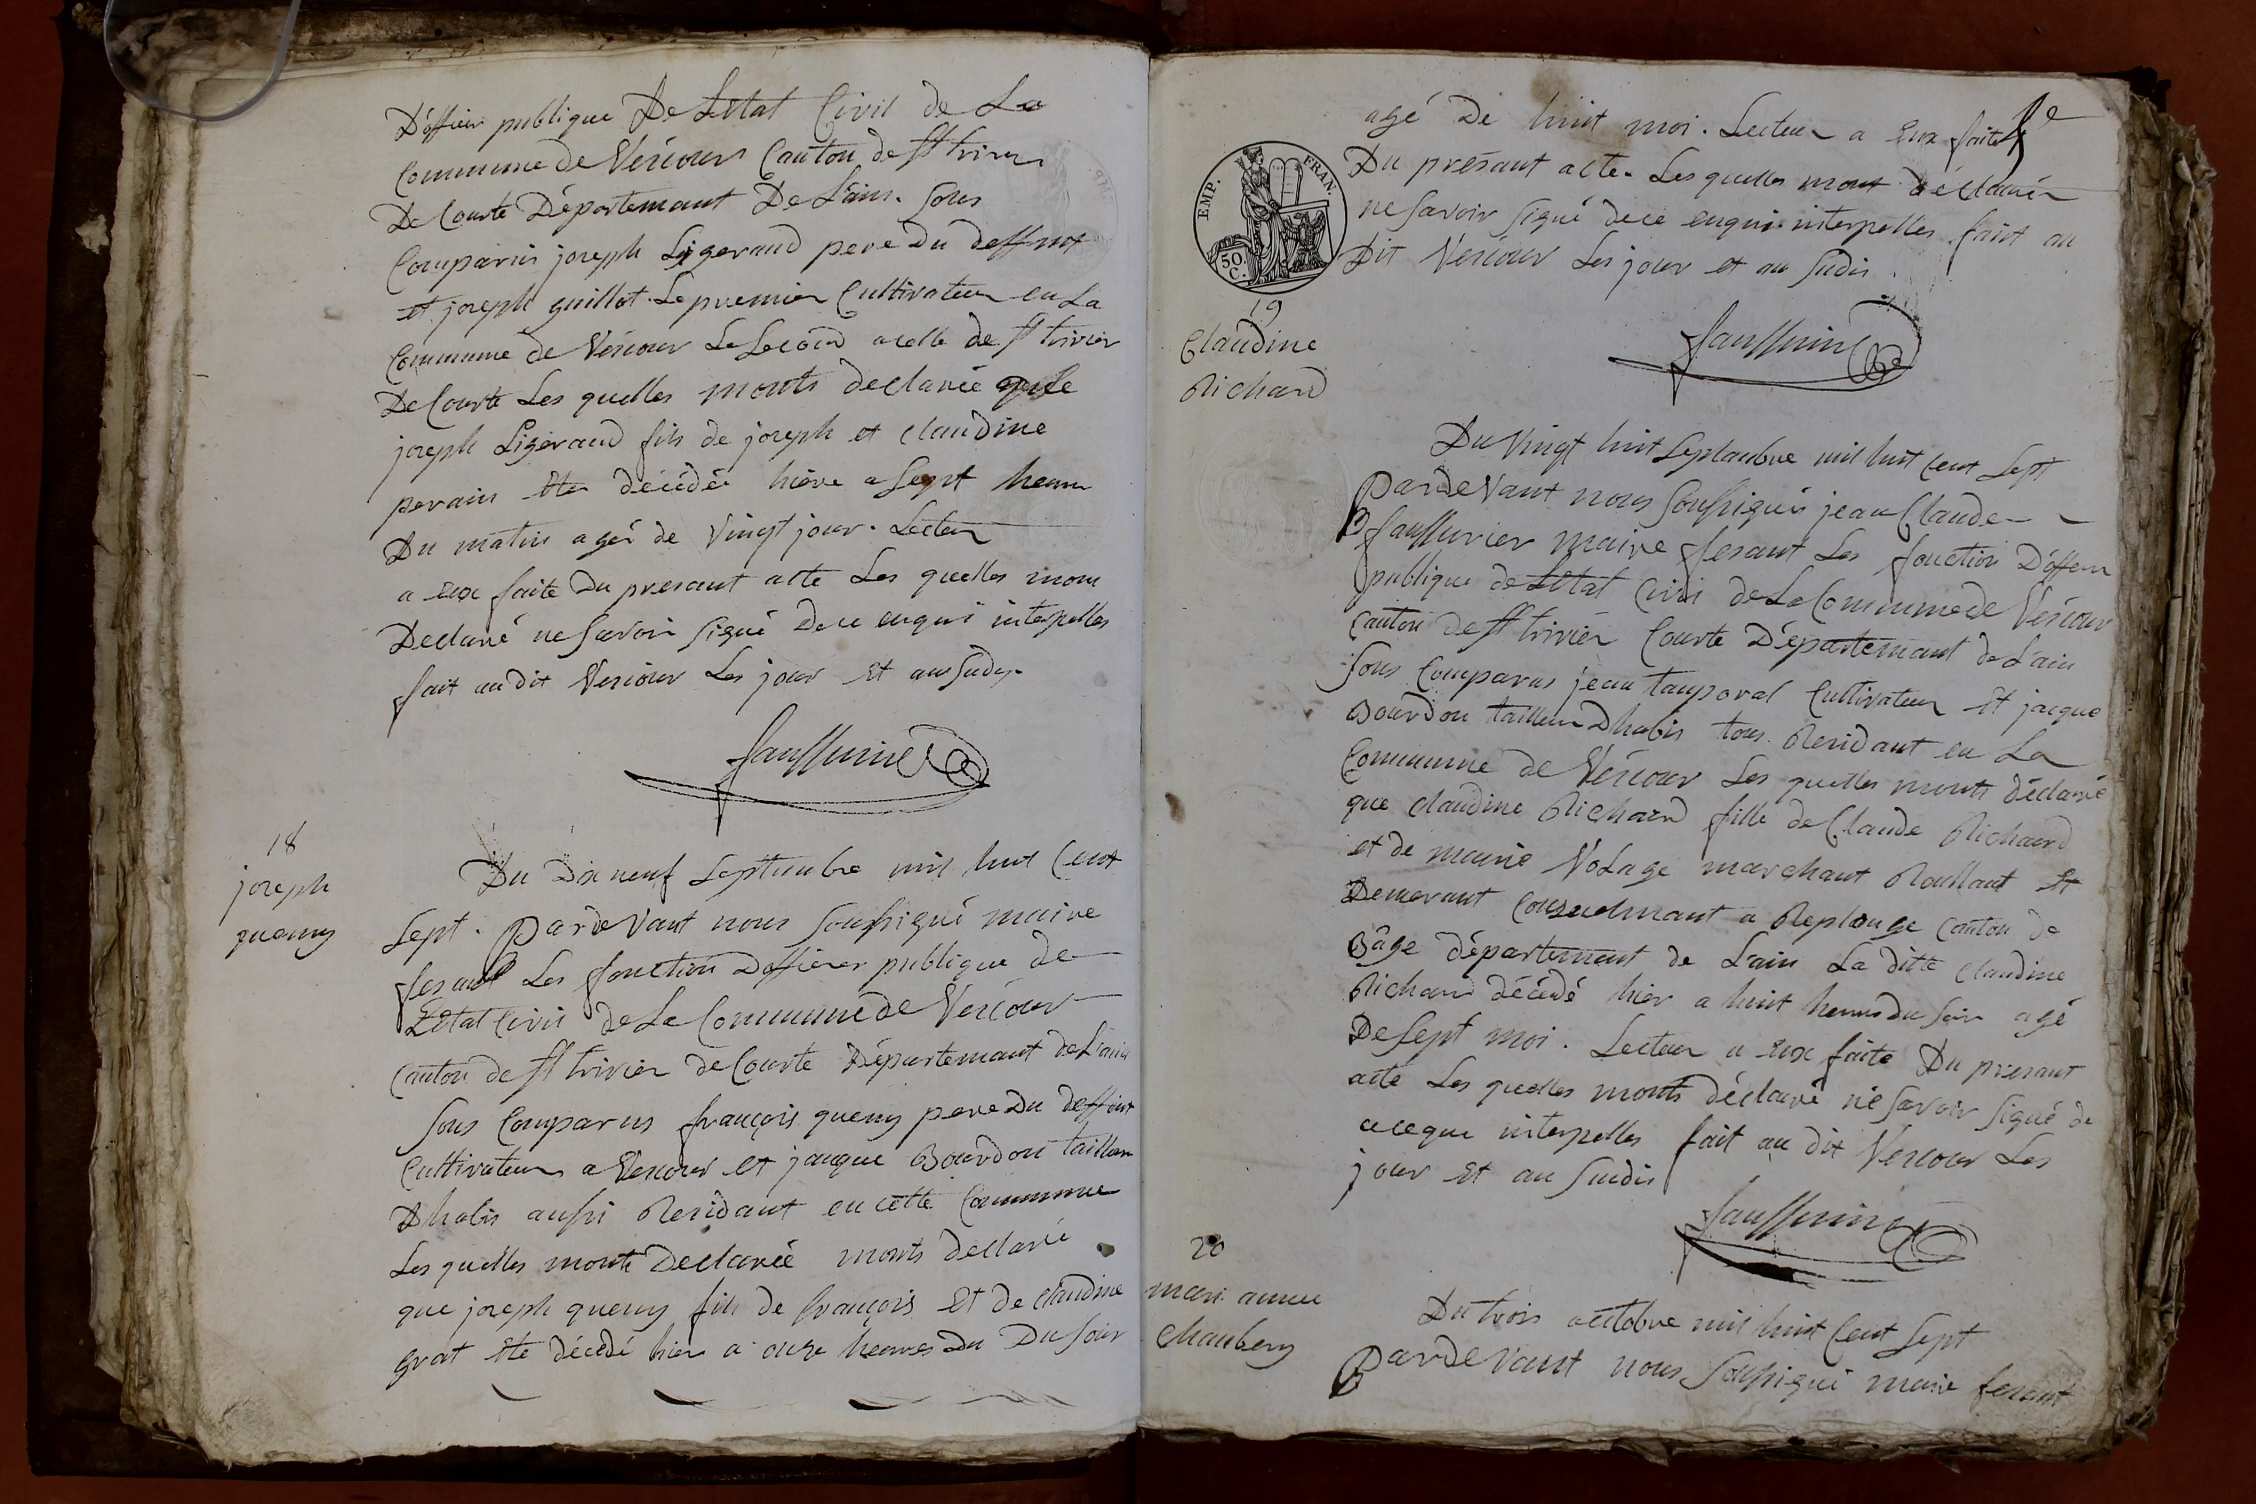 D'officier publique De Létat Civil de La
Commune de Vescours Canton de St trivier
De Courte Département De L'ain. sous
Comparus joseph Ligeraud pere Du deffunt
et joseph guillot. Le premier Cultivateur en La
Commune de Vescour Le Secoud acelle de St trivier
De Courte Les quelles monts declarée que le
joseph Ligeraud fils de joseph et claudine
perain ete décédée hière a Sept heure
Du matin agér de Vingt jour. Lecteur
a eux faite Du presant acte Les quelles mont
Declaré ne Savoir Signé De ce enqui interpelles
fait audit Vescour Les jour et an Sudis
Saussurier
18
joseph
queuny
Du Dix neuf Septembre mil huit Cent
Sept. Parde Vant nous Soussigné maire
fesant Les fonction D'officier publique de
L'État Civil de La Commune de Vescour
Canton de St trivier de Courte Département de L'ain
Sous Comparus françois queuny pere Du deffunt
Cultivateur a Vescour et jauque Bourdon tailleur
D'habis aussi Residant en cette Commune
Les quelles monts Declarée monts declaré
que joseph queuny fils de françois Et de claudine
grat ete décédé hier a onze heures Du Du Soir
agé De huit moi. Lecteur a eux faite
Du présant acte. Les quelles mont déclarér
ne Savoir signé de ce enqui interpelles. fait au
Dit Vescour Les jour et an Sudis
EMP. FRAN.
50 C.
Saussurier
19
Claudine
Richard
Du Vingt huit Septambre mil huit Cent Sept
Pardevant nous Soussignés jean Claude
Saussurier maire fesant Les fonction D'officier
publique de Létat Civil de La Commune de Vescour
Canton de St trivier Courte Département de L'ain
Sous Comparus jean tamporal Cultivateur et jacque
Bourdon tailleur D'habis tous Residant en La
Commune de Vescour Les quelles monts déclaré
que Claudine Richard fille de Claude Richard
et de marie Volage marchant Roullant et
Demerant Couzuelmant a Replonge Canton de
Bâge département de L'ain La ditte Claudine
Richard décédé hier a huit heures du Soir agé
De Sept moi. Lecteur a eux faite Du presant
acte Les quelles monts déclaré ne Savoir signé de
a ce que interpelles fait au dit Vescour Les
jour et an Suidis
Saussurier
20
mari annee
Chambery
Du trois octobre mil huit Cent Sept
Pardevant nous Soussigné maire fesant